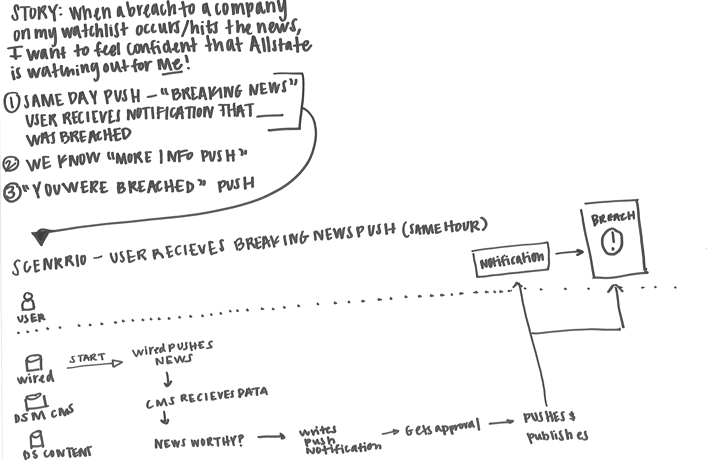 STORY: When a breach to a company
on my watchlist occurs/hits the news,
I want to feel confident that Allstate
is watming out for Me!
① SAME DAY PUSH – "BREAKING NEWS"
USER RECIEVES NOTIFICATION THAT ___
WAS BREACHED
② WE KNOW "MORE INFO PUSH"
③ "YOU WERE BREACHED" PUSH
SCENKRIO – USER RECIEVES BREAKING NEWS PUSH (SAME HOUR)
BREACH
!
Notification
USER
wired
START
wired PUSHES
NEWS
DSM CMS
CMS RECIEVES DATA
DS CONTENT
NEWS WORTHY?
writes
push
Notification
Gets approval
PUSHES &
publishes